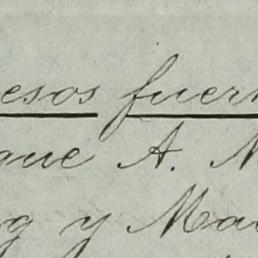 esos fuer
que A. M
g y Ma